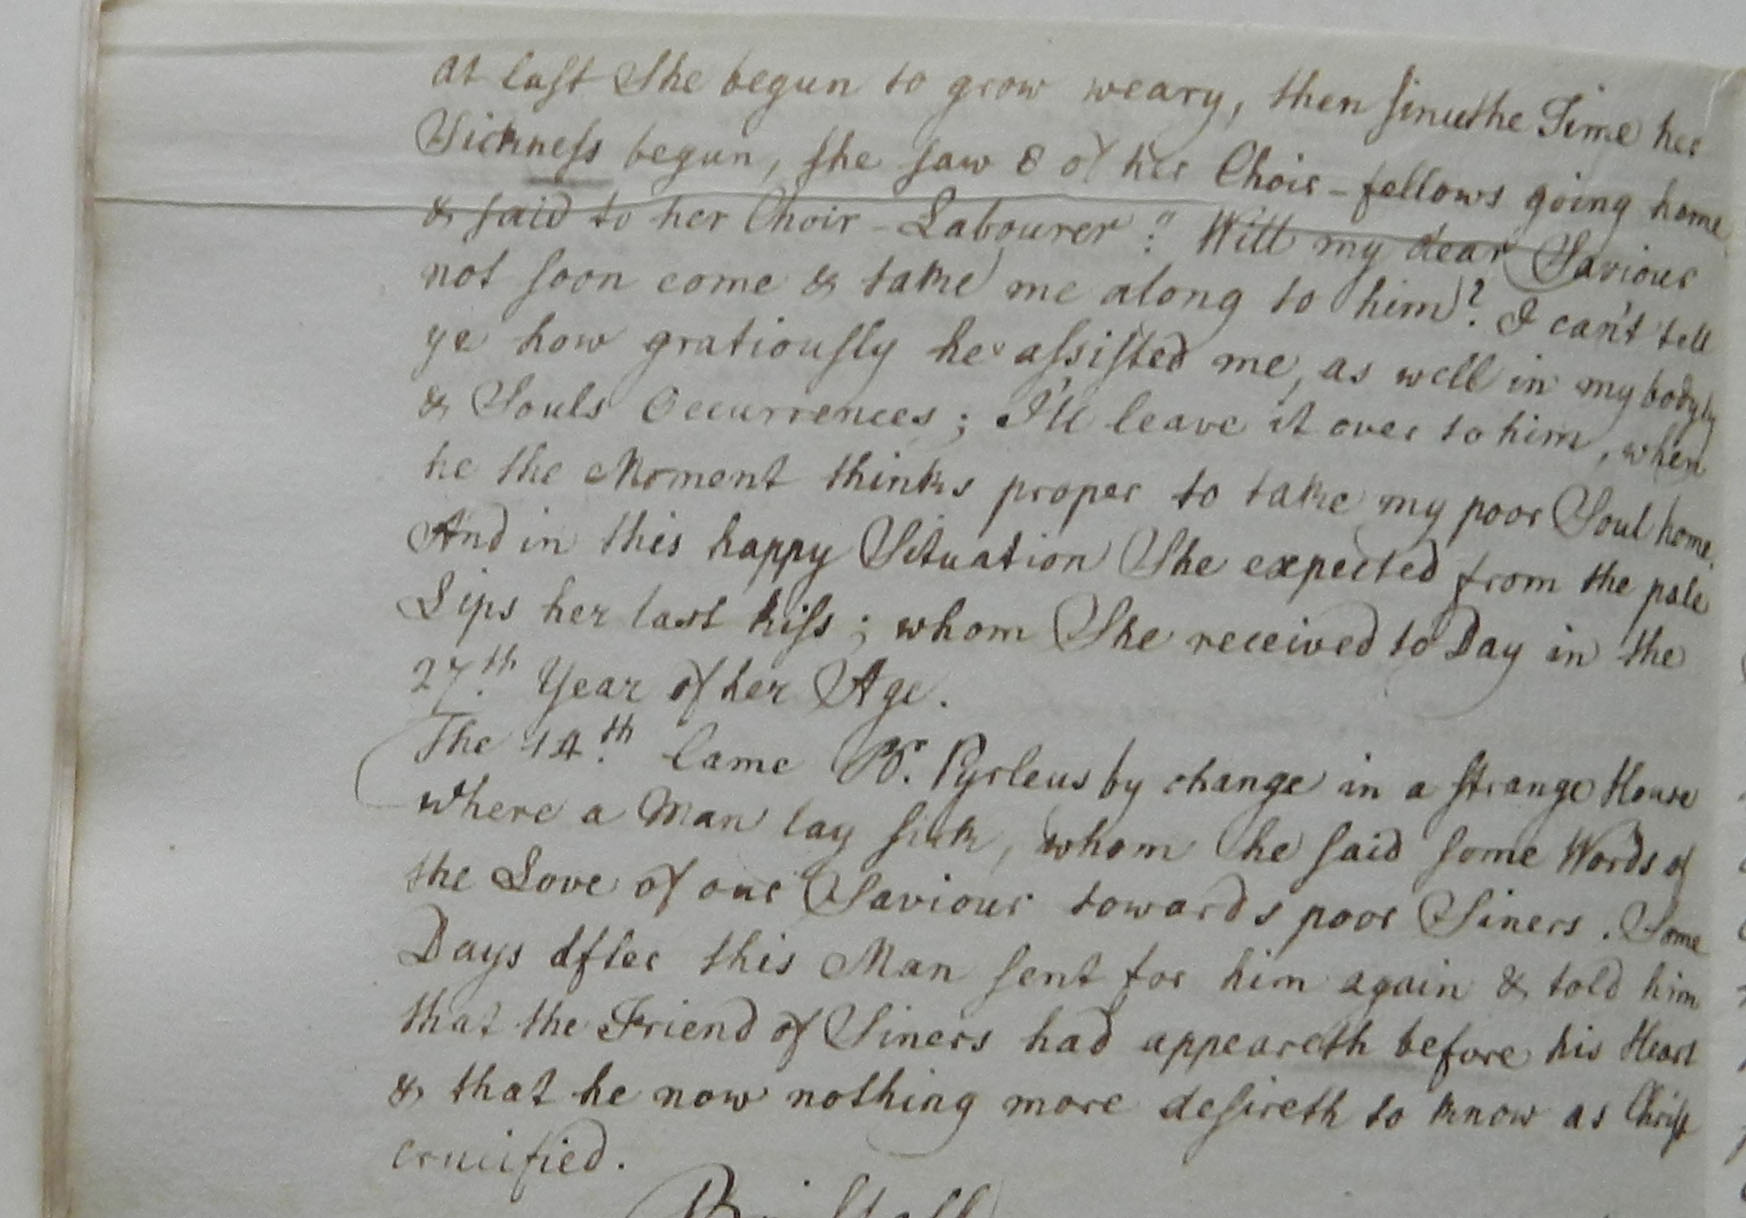 at last She begun to grow weary, then since the Time her
Sickness begun, she saw 8 of her Choir-fellows going home
& said to her Choir-Labourer: "Will my dear Saviour
not soon come & take me along to him? I can't tell
ye how gratiously he assisted me, as well in my bodyly
& Souls Occurrences; I'll leave it over to him, when
he the Moment thinks proper to take my poor Soul home.
And in this happy Situation She expected from the pale
Lips her last kiss; whom She received to Day in the
27.th Year of her Age.
The 14.th Came Br. Pyrleus by change in a strange House
where a Man lay sick, whom he said some Words of
the Love of our Saviour towards poor Siners. Some
Days after this Man sent for him again & told him
that the Friend of Siners had appeareth before his Heart
& that he now nothing more desireth to know as Christ
crucified.